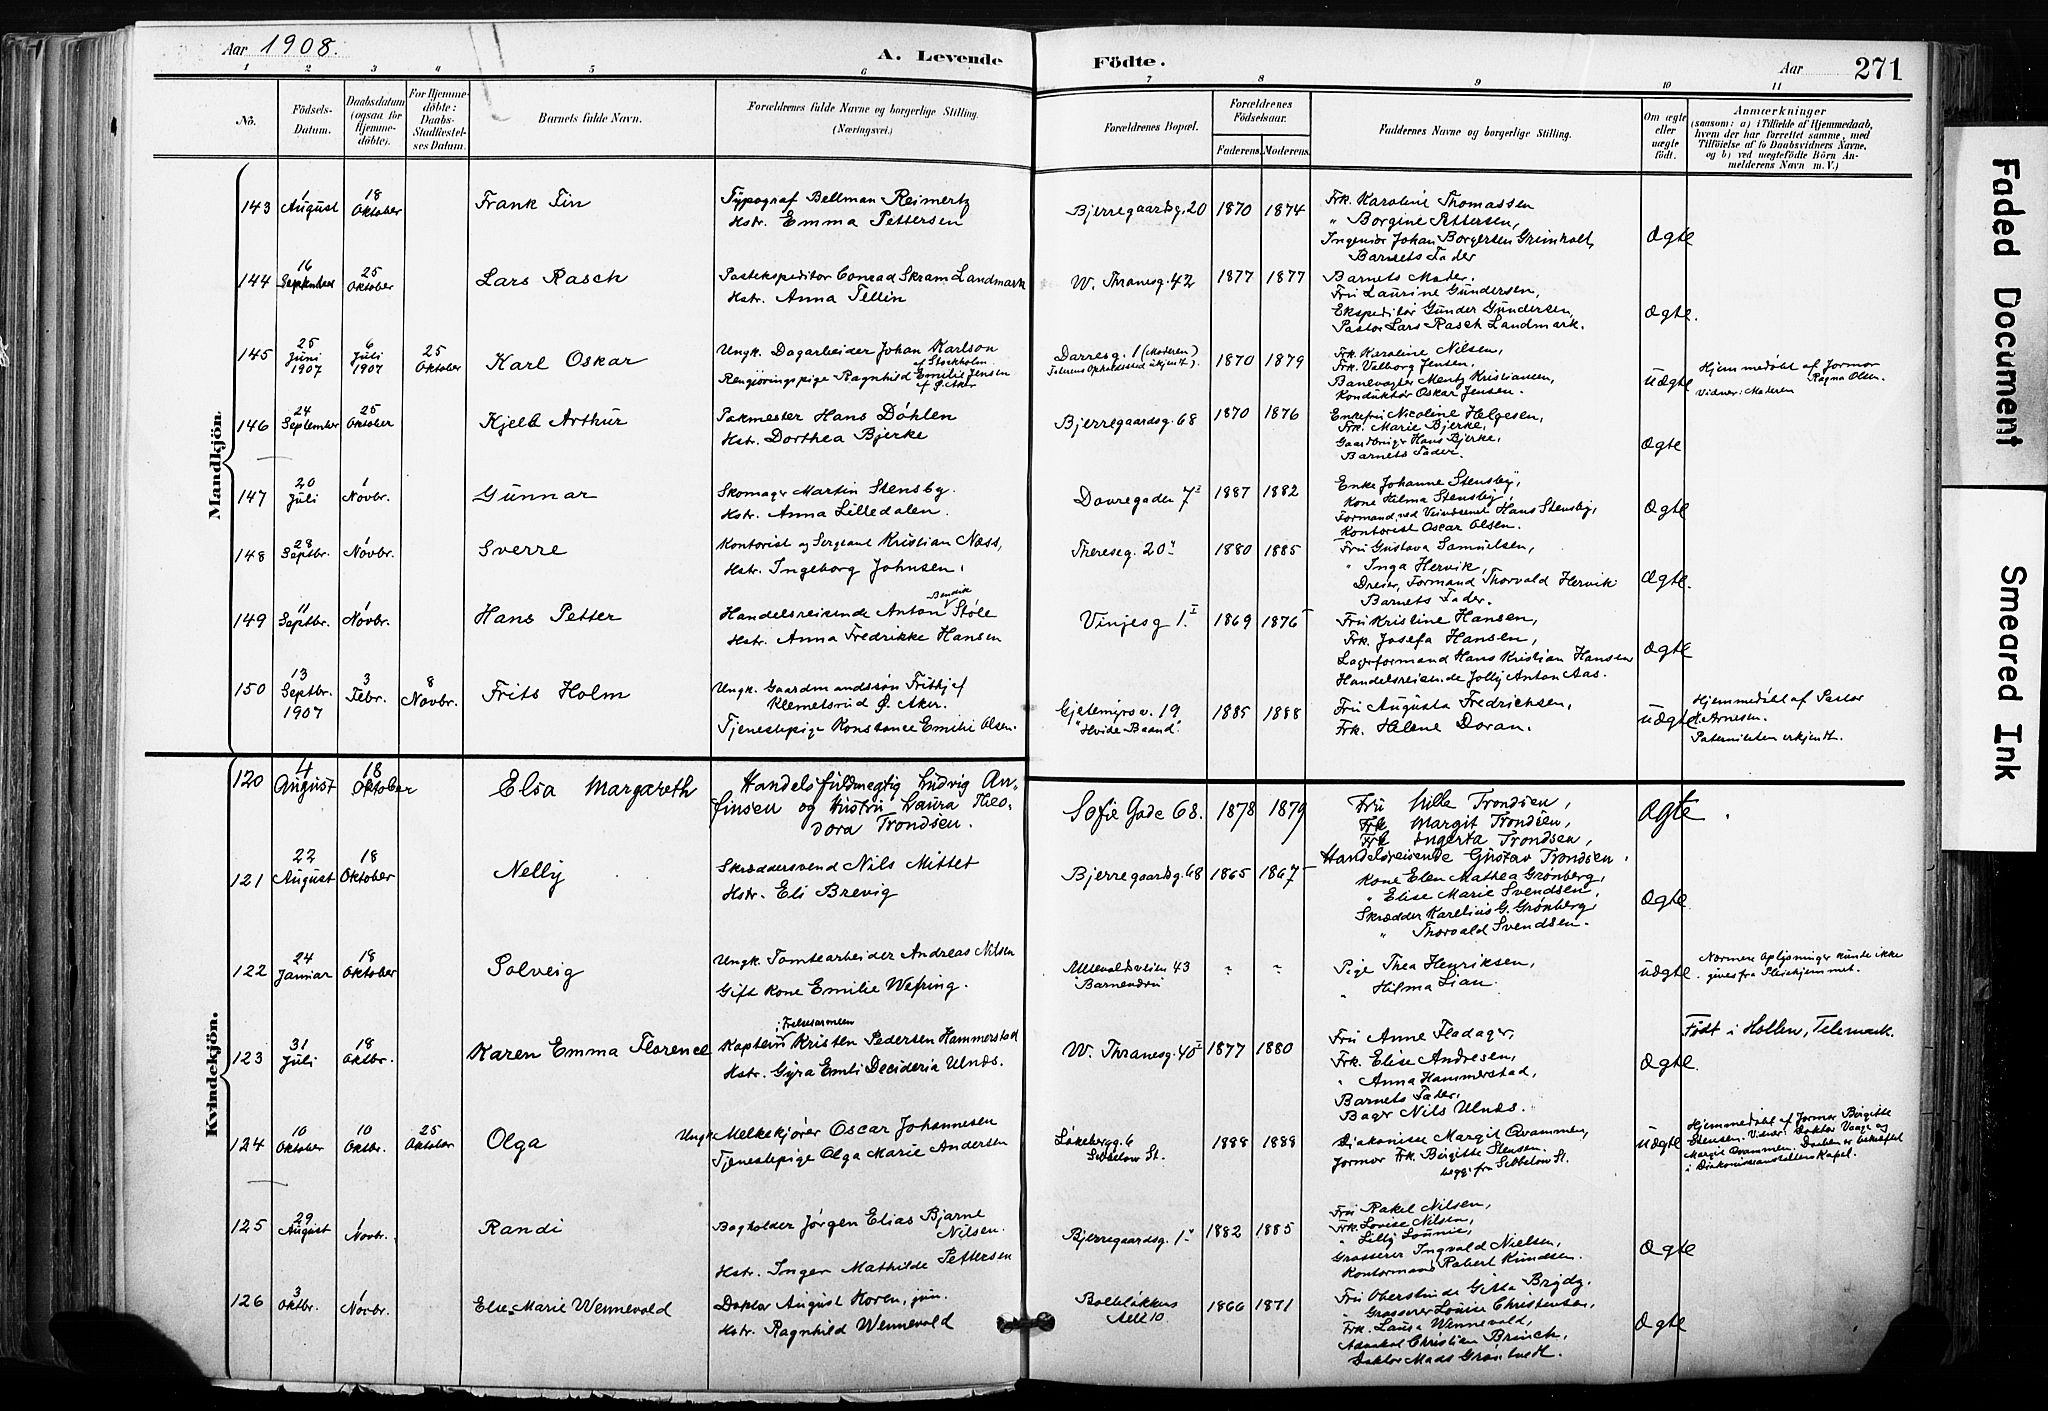 Aar 1908.
A. Levende Födte.
Aar 271
1 2 3 4 5 6 7 8 9 10 11
Nō.
Födsels-Datum.
Daabsdatum (ogsaa for Hjemmedöbte).
For Hjemmedöbte: Daabs-Stadfæstelses Datum.
Barnets fulde Navn.
Forældrenes fulde Navne og borgerlige Stilling.
(Næringsvei.)
Forældrenes Bopæl.
Forældrenes Födselsaar.
Faderens. Moderens.
Faddernes Navne og borgerlige Stilling.
Om ægte eller uægte födt.
Anmærkninger
(saasom: a) i Tilfælde af Hjemmedaab, hvem der har forrettet samme, med Tilföielse af to Daabsvidners Navne, og b) ved uægtefödte Börn Anmelderens Navn m. V.)
Mandkjön.
143 1 August 18 Oktober Frank Finn
Typograf Bellman Reimertz
Hstr. Emma Pettersen
Bjerregaardsg. 20 1870 1874
Frk. Karoline Thomassen
" Borgine Pettersen,
Ingeniör Johan Borgersen Grimholt,
Barnets Fader
Ægte
144 16 September 25 Oktober Lars Rasch
Postekspeditor Conrad Skram Landmark
Hstr. Anna Tellin
W. Thranesg. 42 1877 1877
Barnets Moder.
Fru Laurine Gundersen,
Ekspeditör Gunder Gundersen,
Pastor Lars Rasch Landmark.
Ægte.
145 25 Juni 1907 6 Juli 1907 25 Oktober Karl Oskar
Ungk. Dagarbeider Johan Karlson
af Stockholm
Rengjöringspige Ragnhild Emilie Jensen
af Ø. Aker
Darresg. 1 (Moderen)
Faderens Opholdssted ukjent). 1870 1879
Frk. Karoline Nilsen,
Frk. Valborg Jensen.
Banevogter Mentz Kristiansen,
Konduktör Oskar Jensen.
uægte
Hjemmedöbt af Jormor
Ragna Olsen.
Vidner: Moderen
146 24 September 25 Oktober Kjell Arthur
Pakmester Hans Döhlen
Hstr. Dorthea Bjerke
Bjerregaardsg. 68 1870 1876
Enkefru Nicoline Helgesen,
Frk. Marie Bjerke,
Gaardbruger Hans Bjerke,
Barnets Fader.
Ægte
147 20 Juli 1 Novbr. Gunnar
Skomager Martin Stensby.
Hstr. Anna Lilledalen.
Dovregaden 7 I 1887 1882
Enke Johanne Stensby,
Kone Hilma Stensby,
Formand ved Veivæsenet Hans Stensby,
Kontorist Oscar Olsen.
Ægte
148 28 Septbr. 1 Novbr. Sverre
Kontorist og Sergeant Kristian Næss,
Hstr. Ingeborg Johnsen.
Theresesg. 20 II 1880 1885
Fru Gustava Samuelsen,
" Inga Hervik,
Dreier, Formand Thorvald Hervik
Barnets Fader.
Ægte.
149 11 Septbr. 1 Novbr. Hans Petter
Handelsreisende Anton Bendik Støle
Hstr. Anna Fredrikke Hansen
Vinjesg 1. I 1869 1876
Fru Kristine Hansen,
Frk. Josefa Hansen,
Lagerformand Hans Kristian Hansen
Handelsreisende Jolly Anton Aas.
Ægte
150 13 Septbr. 1907 3 Febr. 8 Novbr. Frits Holm
Ungk. Gaardmandssøn Frithjof
Klemetsrud Ø. Aker.
Tjenestepige Konstance Emilie Olsen.
Gjetemyrsv. 19
"Hvide Baand". 1885 1888
Fru Augusta Fredrichsen,
Frk. Helene Doran.
uægte
Hjemmedöbt af Pastor
Arnesen.
Paterniteten erkjendt.
Kvindekjön.
120 4 August 18 Oktober Elsa Margareth
Handelsfuldmegtig Ludvig An-
finsen og Hustru Laura Theo-
dora Trondsen.
Sofie Gade 68. 1878 1879
Fru Mille Trondsen,
Frk Margit Trondsen,
Frk Ingerta Trondsen,
Handelsreisende Gustav Trondsen.
Ægte.
121 22 August 18 Oktober Nelly
Skræddersvend Nils Mittet
Hstr. Eli Brevig
Bjerregaardsg. 68 1865 1867
Kone Elen Mathea Grønberg,
" Elise Marie Svendsen,
Skrædder Karelius G. Grønberg,
" Thorvald Svendsen.
Ægte.
122 24 Januar 18 Oktober Solveig
Ungk. Tomtearbeider Andreas Nilsen
Gift Kone Emilie Wefring.
Ullevoldsveien 43
Barnendru - -
Pige Thea Henriksen,
" Hilma Lian.
uægte
Nærmere Oplysninger kunde ikke
gives fra Pleiehjemmet.
123 31 Juli 18 Oktbr. Karen Emma Florence
Kaptein i Frelsesarmeen Kristen Pedersen Hammerstad
Hstr. Gyra Emli Decideria Ulnæs.
W. Thranesg. 40 I 1877 1880
Fru Anne Fladager,
Frk. Elise Andresen,
" Anna Hammerstad,
Barnets Fader,
Bager Nils Ulnæs.
Ægte.
Født i Hollen, Telemark.
124 10 Oktober 10 Oktbr. 25 Oktober Olga
Ungk. Melkekjører Oscar Johannesen
Tjenestepige Olga Marie Andersen
Løkebergg. 6
Sebbelow St. 1888 1888
Diakonisse Margit Qvammen,
Jormor Frk. Birgitte Stensen.
begge fra Sebbelow St.
uægte
Hjemmedöbt af Jormor Birgitte
Stensen. Vidner: Doktor Vaage og
Margit Qvammen. Daaben er bekræftet
i Diakonisseanstaltens Kapel.
125 29 August 1 Novbr. Randi
Bogholder Jørgen Elias Bjarne
Nilsen.
Hstr. Inger Mathilde Pettersen
Bjerregaardsg. 1 II 1882 1885
Fru Rakel Nilsen,
Frk. Lovise Nilsen,
" Lilly Lounie,
Grosserer Ingvald Nielsen,
Kontormand Robert Knudsen.
Ægte
126 3 Oktbr. 1 Novbr. Else Marie Wennevold
Doktor August Koren, jun.
Hstr. Ragnhild Wennevold
Bolteløkkens
Allé 10. 1866 1871
Fru Oberstinde Gitta Brydg.
" Grosserer Louise Christensen,
Frk. Laura Wennevold,
Advokat Christian Brinch,
Doktor Mads Grøntvedt.
Ægte
Faded Document
Smeared Ink